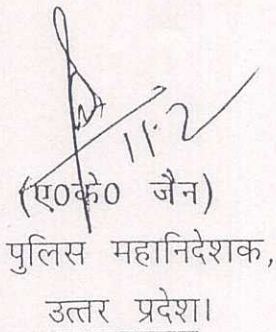 11.2
(ए0के0 जैन)
पुलिस महानिदेशक,
उत्तर प्रदेश।